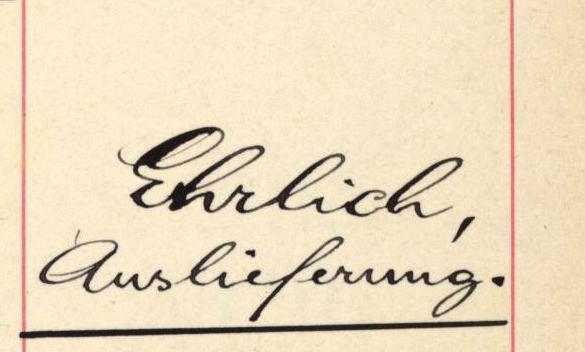 Ehrlich,
Auslieferung.